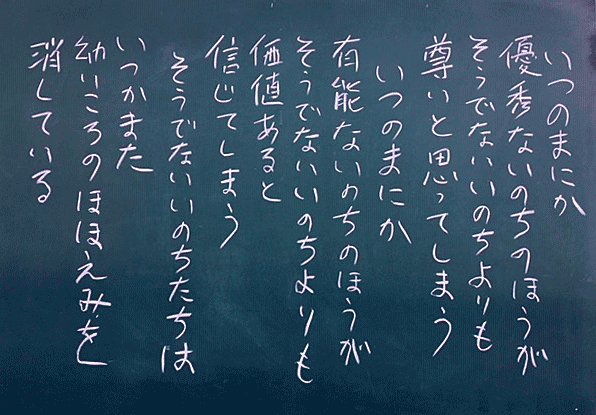 いつのまにか
優秀ないのちのほうが
そうでないいのちよりも
尊いと思ってしまう
いつのまにか
有能ないのちのほうが
そうでないいのちよりも
価値あると
信じてしまう
そうでないいのちたちは
いつかまた
幼いころのほほえみを
消している